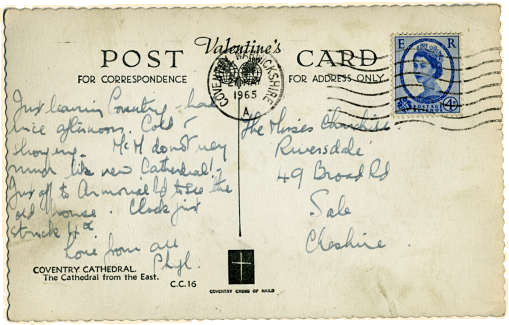 Valentine's
POST CARD
FOR CORRESPONDENCE
FOR ADDRESS ONLY
COVENTRY WARWICKSHIRE
1965
A
E R
POSTAGE
4D
Just leaving Coventry had
nice afternoon. Cold &
showery. M & M don't very
much like new Cathedral!
Just off to Armorial Rd to see the
old house. Clock just
struck 4
Love from all
Phyl.
The Misses
Riversdale
49 Broad Rd
Sale
Cheshire.
COVENTRY CATHEDRAL.
The Cathedral from the East.
C.C.16
COVENTRY CROSS OF NAILS